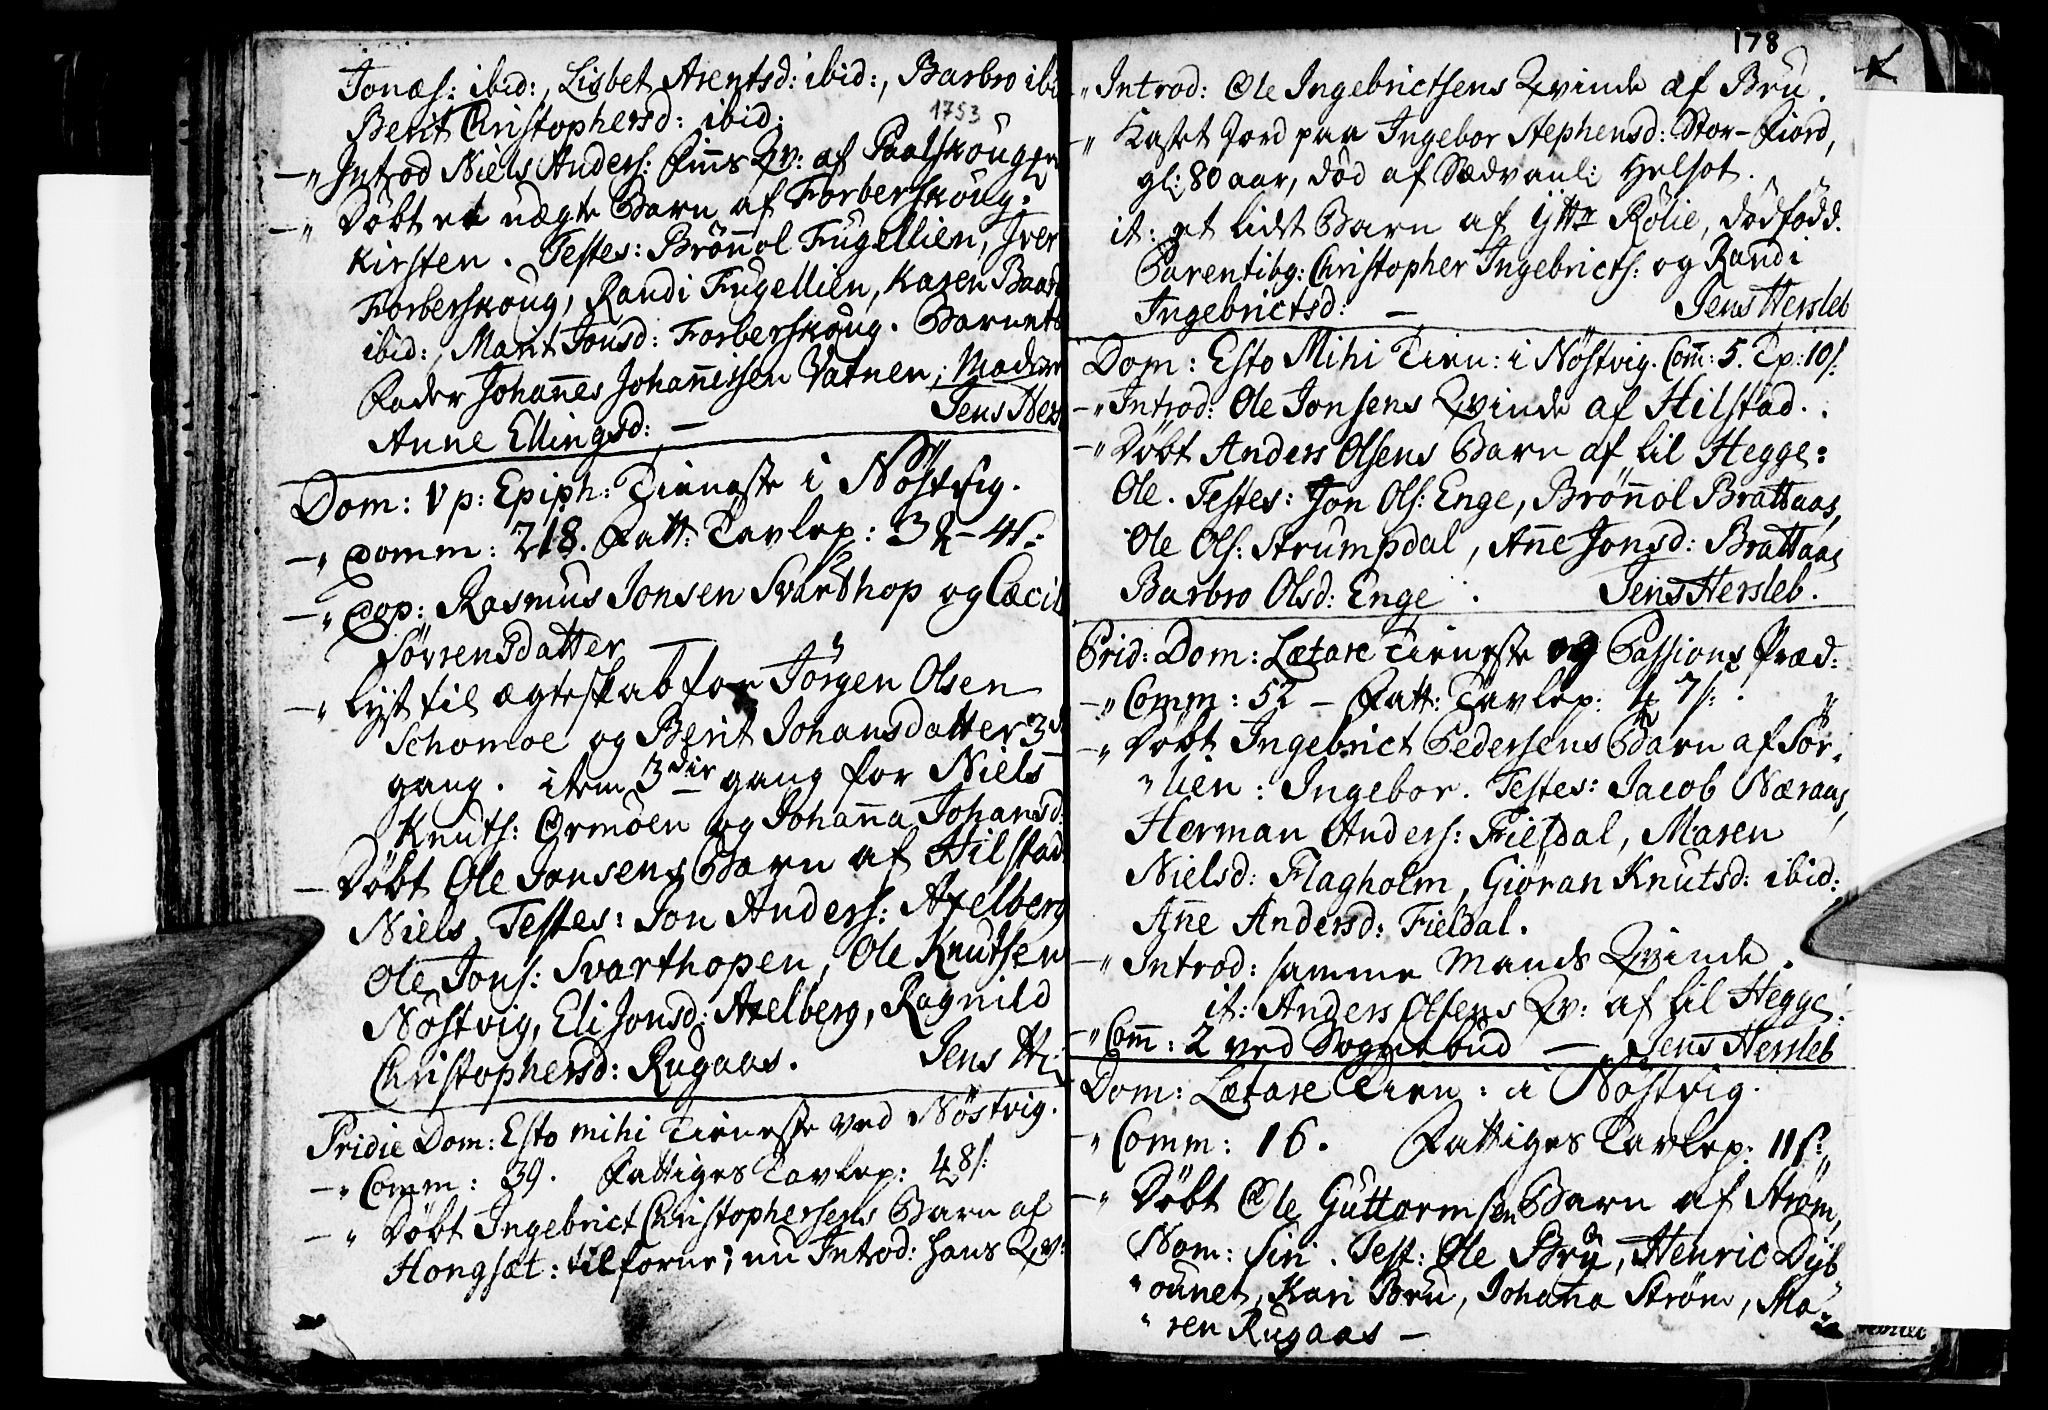 Jonæs: ibid:, Lisbet Arentsd: ibid:, Barbro ibi
Berit Christophersd: ibid:
1753
Introd Niels Anders: Finns Qv: af Paalskoug
Döbt et uægte Barn af Forberskoug:
Kirsten. Testes: Brönnol Fugellien, Iver
Forberskoug, Randi Fugellien, Karen Baar
ibid:, Marit Jonsd: Forberskoug. Barnets
Fader Johannes Johannissen Vatnen; Moder
Anne Ellingsd: — Jens Hers
Dom: V p: Epiph: Tieneste i Nöstvig.
Comm: 218. Fatt: Tavlep: 3 — 4 s:
Cop: Rasmus Jonsen Svarthop og Cæcil
Sörrensdatter —
lyst til ægteskab for Jörgen Olsen
Schomoe og Berit Johansdatter 3
gang. item 3die gang for Niels
Knuts: Ormöen og Johanna Johansd:
Döbt Ole Jonsens Barn af Hilstad
Niels. Testes: Jon Anders: Axelberg
Ole Jons: Svarthopen, Ole Knutsen
Nöstvig, Eli Jonsd: Axelberg, Ragnild
Christophersd: Rugaas. Jens H
Pridie Dom: Esto mihi Tieneste ved Nöstvig.
Comm: 39. Fattiges Tavlep: 48 s:
Döbt Ingebrict Christophersens Barn af
Hongsæt: tilforne; nu Introd: hans Qv:
178
Introd: Ole Ingebrictsens Qvinde af Bru.
Kastet Jord paa Ingebor Stephensd: Stor-Fiord,
gl: 80 aar, död af Sædvanli: Helsot.
it: et lidet Barn af Ytter Rölie, dödfödd.
Parentibg: Christopher Ingebricts: og Randi
Ingebrictsd: — Jens Hersleb
Dom: Esto Mihi Tien: i Nöstvig. Com: 5. Tp: 10 s:
Introd: Ole Jonsens Qvinde af Hilstad.
Döbt Anders Olsens Barn af lil Hegge:
Ole. Testes: Jon Ols: Enge, Brönnol Brattaas,
Ole Ols: Strumpdal, Anne Jonsd: Brattaas
Barbro Olsd: Enge. Jens Hersleb.
Prid: Dom: Lætare Tieneste og Passions Præd:
Comm: 52 — Fatt: Tavlep: 7 s:
Döbt Ingebrict Pedersens Barn af Sör-
lien: Ingebor. Testes: Jacob Næraas,
Herman Anders: Fieldal, Maren
Nielsd: Flagholm, Giöran Knutsd: ibid:
Anne Andersd: Fieldal.
Introd: samme Mands Qvinde.
it: Anders Olsens Qv: af lil Hegge:
Com: 2 ved Sognebud — Jens Hersleb
Dom: Lætare Tien: i Nöstvig.
Comm: 16. Fattiges Tavlep: 11 s:
Döbt Ole Guttormsen Barn af Ström,
Nom: Siri. Test: Ole Bru, Henric Dyb
ounet, Kari Bru, Johana Ström, Ma-
ren Rugaas —